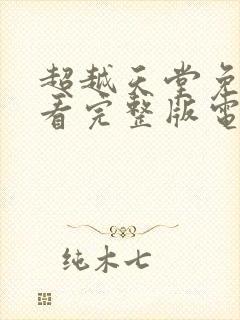 超越天堂免
看完整版電
纯木七